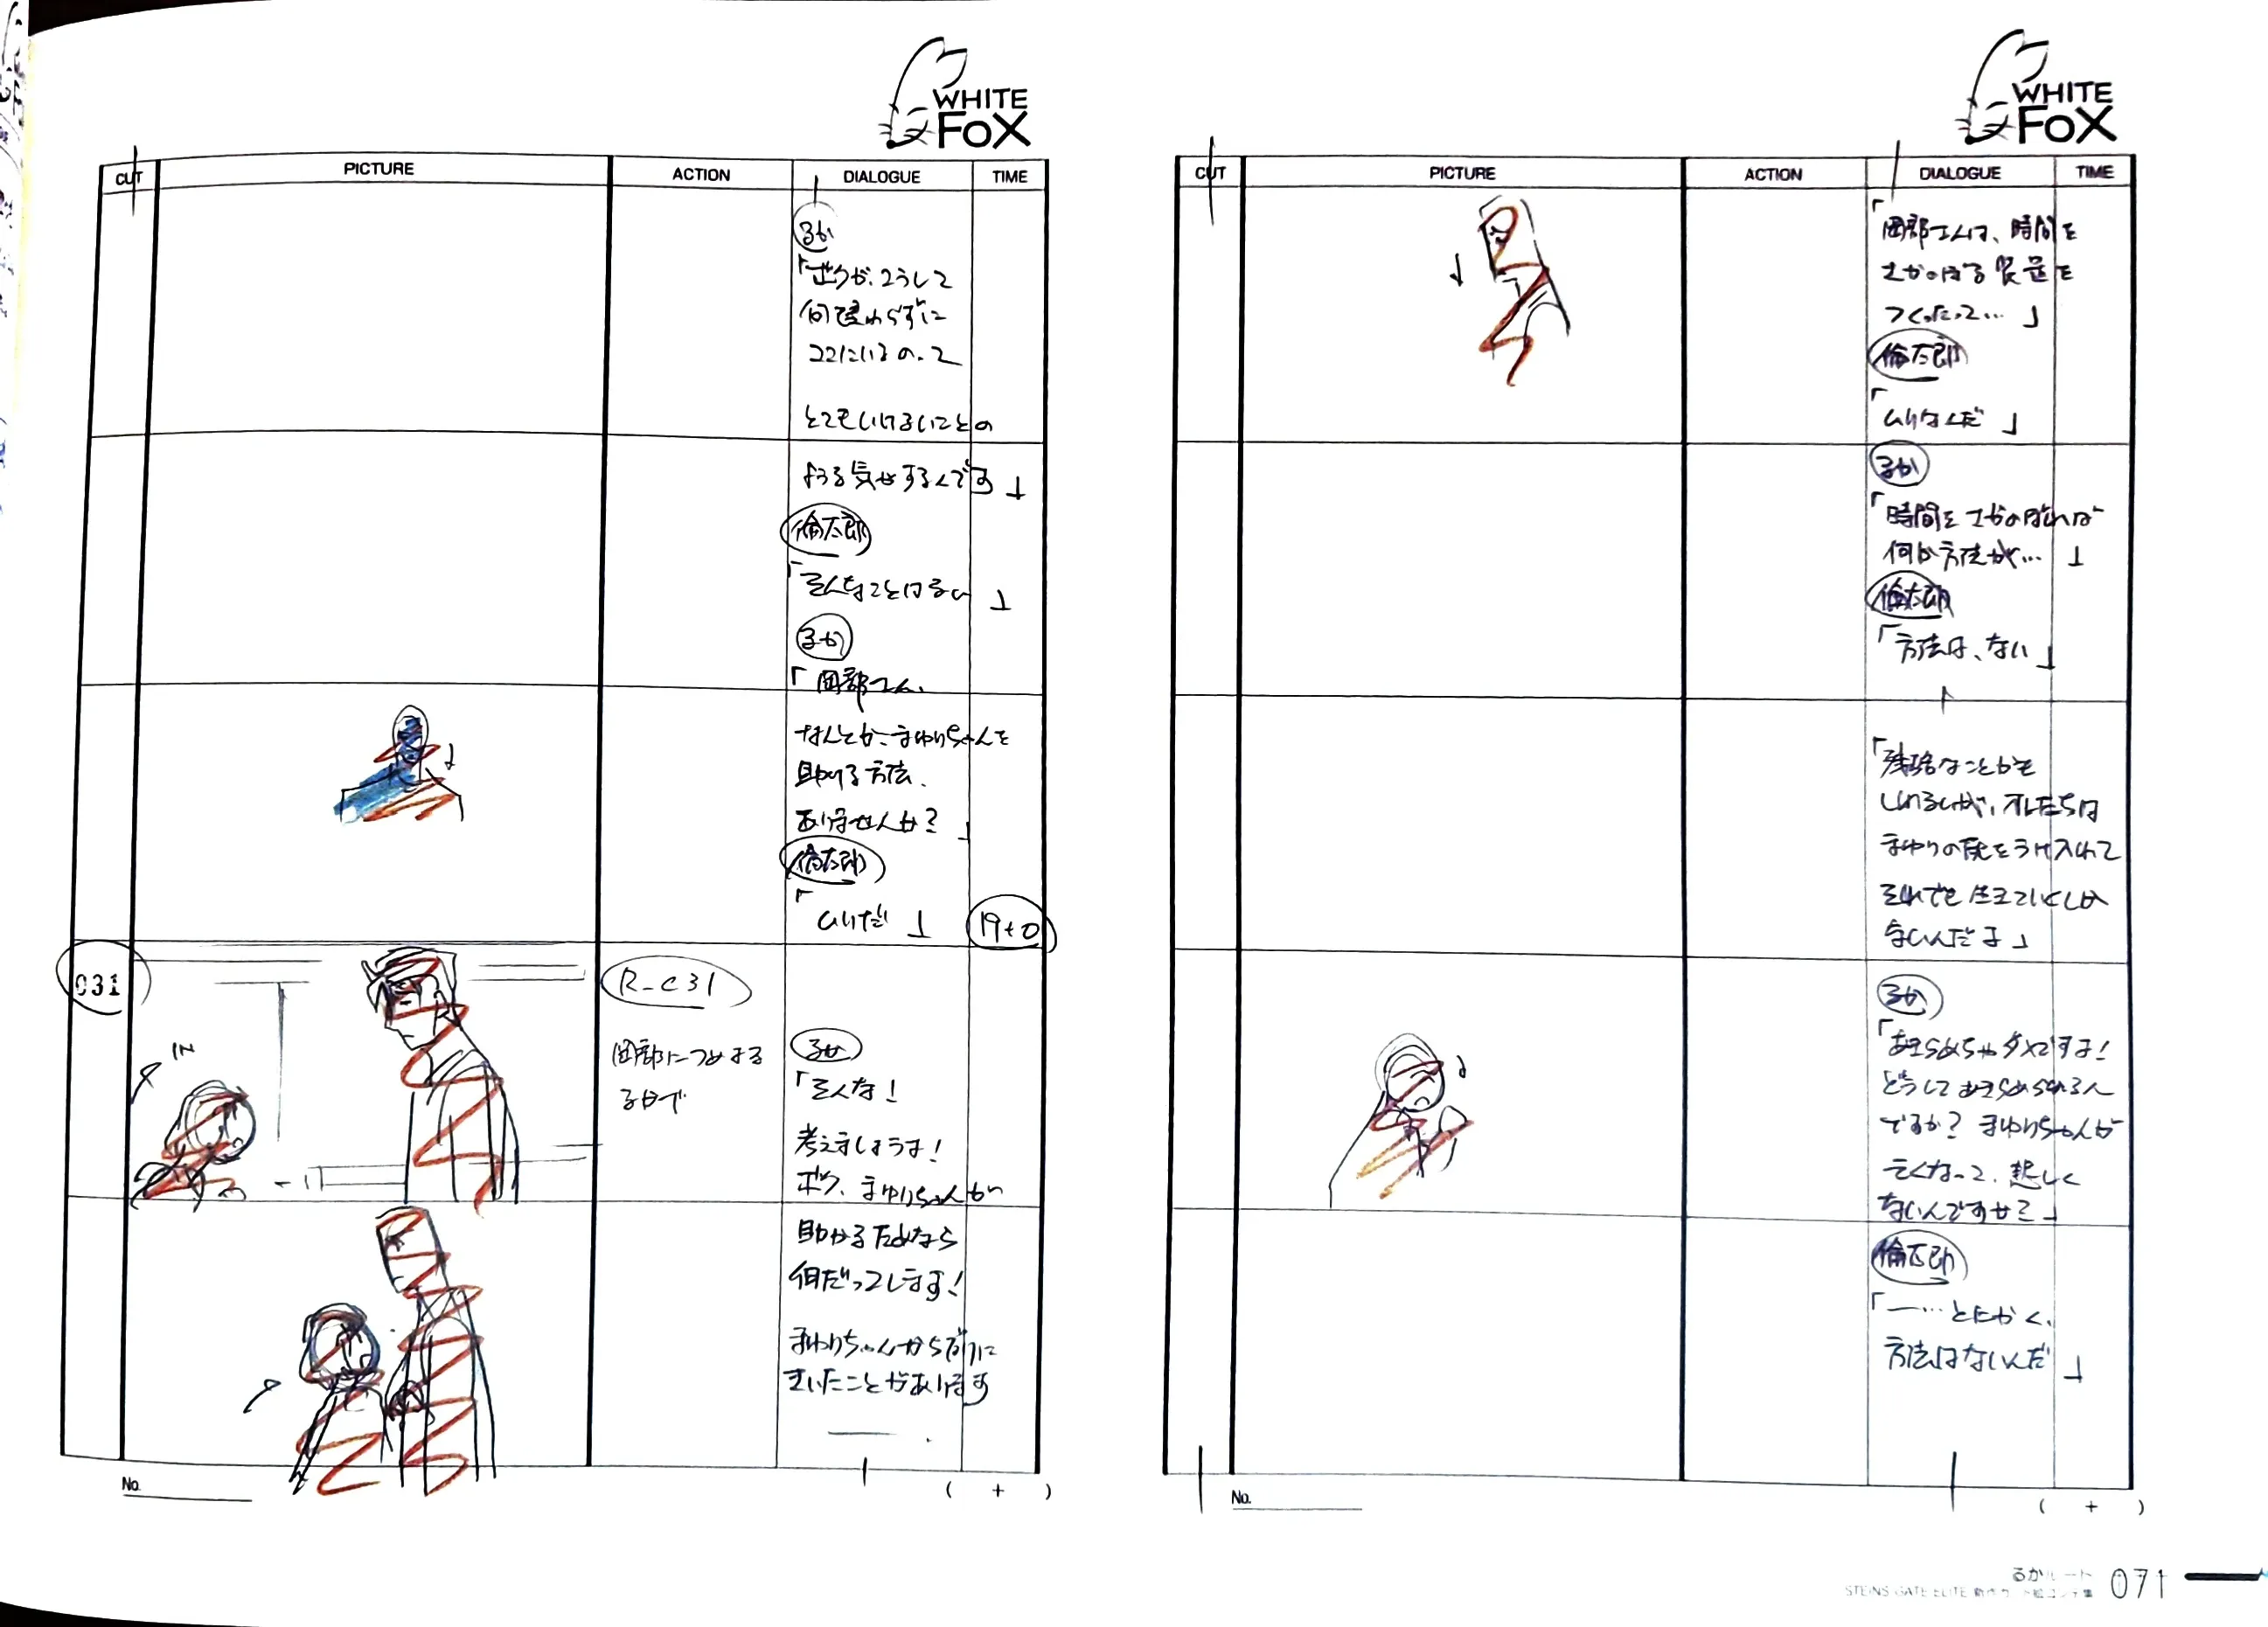 WHITE
FOX
CUT PICTURE ACTION DIALOGUE TIME
るか
「ボクが、こうして
何変わらずに
ココにいるのって
とてもいけないことの
ような気がするんです」
倫太郎
「そんなことはない」
るか
「岡部さん、
なんとか、まゆりちゃんを
助ける方法、
ありませんか?」
倫太郎
「ムリだ」
19+0
031
IN
R_c31
岡部につめよる
るか
「そんな!
考えましょうよ!
ボク、まゆりちゃんが
助かるためなら
何だってします!
まゆりちゃんから前に
きいたことがあります
No.
( + )
WHITE
FOX
CUT PICTURE ACTION DIALOGUE TIME
「岡部さんは、時間を
さかのぼる装置を
つくったって…」
倫太郎
「ムリなんだ」
るか
「時間をさかのぼれば
何か方法が…」
倫太郎
「方法は、ない」
「残酷なことかも
しれないが、オレたちは
まゆりの死をうけ入れて
それでも生きていくしか
ないんだよ」
るか
「あきらめちゃダメですよ!
どうしてあきらめられるん
ですか? まゆりちゃんが
亡くなって、悲しく
ないんですか?」
倫太郎
「―…とにかく、
方法はないんだ」
No.
( + )
るかルート
STEINS;GATE ELITE 新作カット絵コンテ集
071